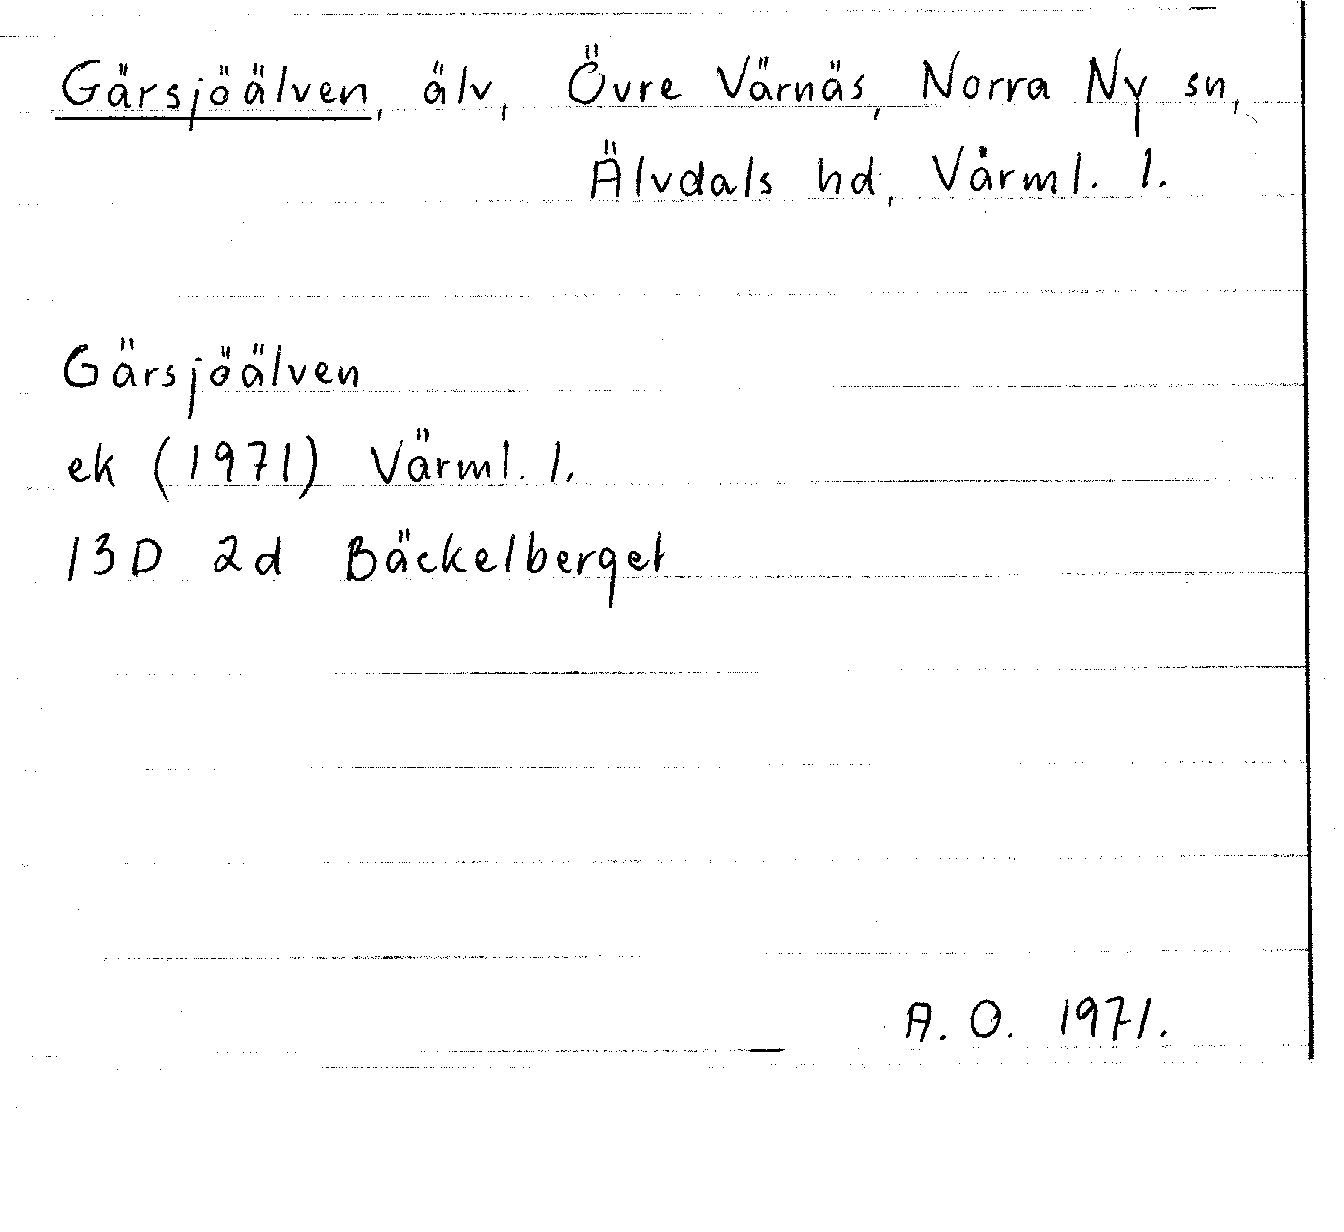 Gärsjöälven, älv, Övre Värnäs, Norra Ny sn,
Älvdals hd, Värml. l.
Gärsjöälven
ek (1971) Värml. l.
13D 2d Bäckelberget
A. O. 1971.